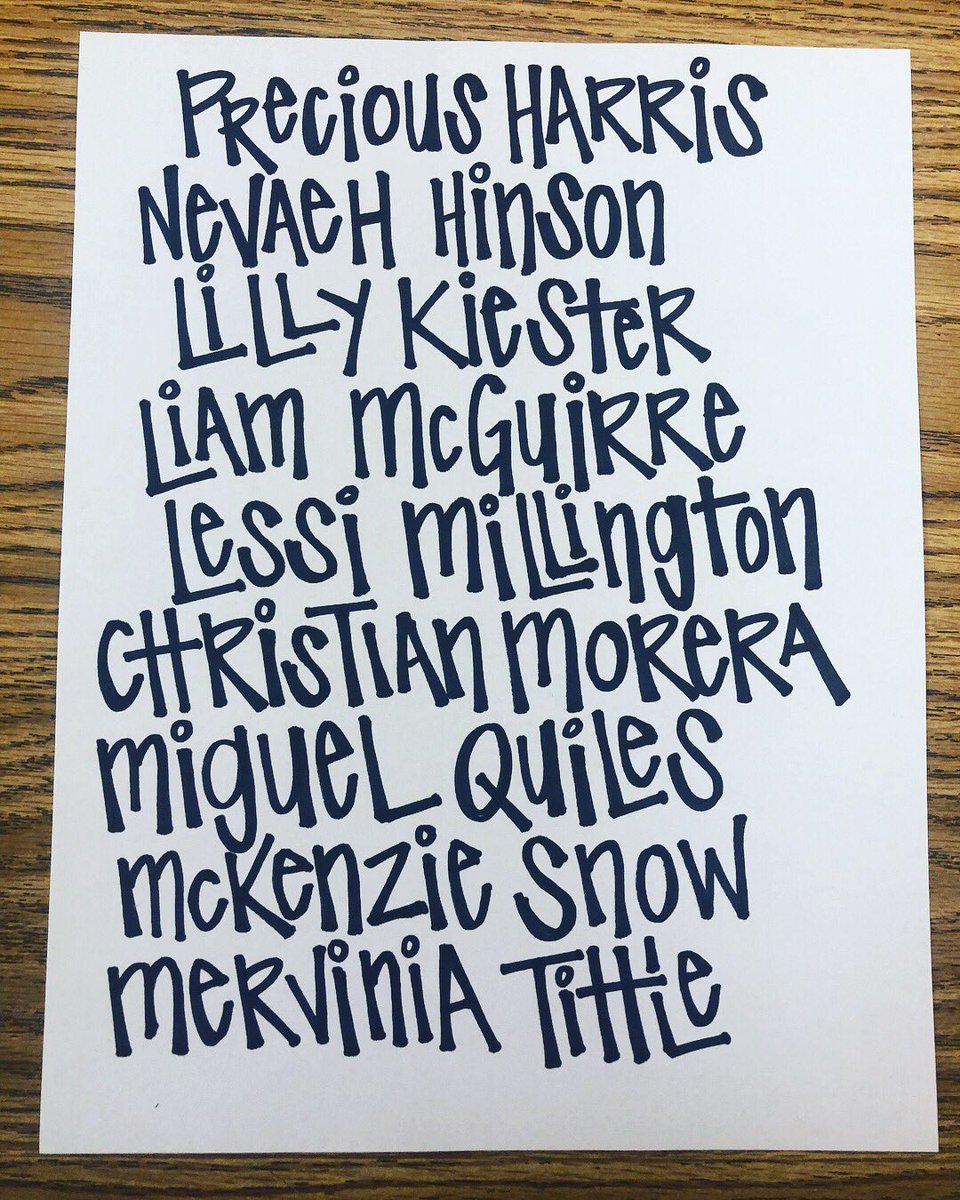 Precious Harris
Nevaeh Hinson
Lilly Kiester
Liam McGuirre
Lessi Millington
Christian Morera
Miguel Quiles
McKenzie Snow
Mervinia Tittle